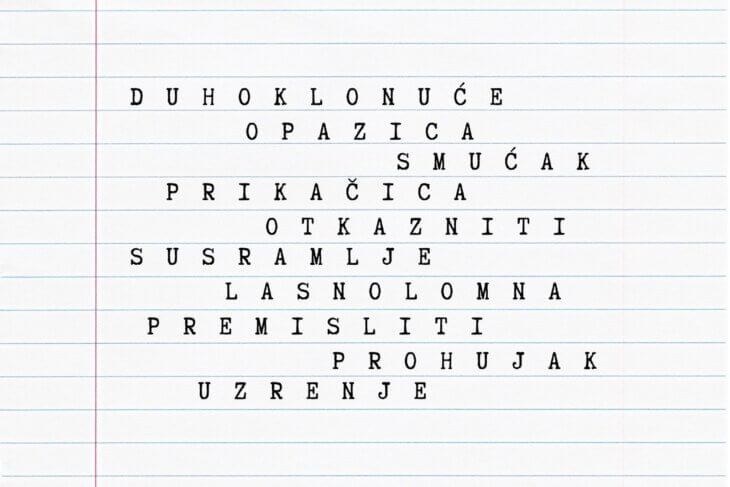 DUHOKLONUĆE
OPAZICA
SMUĆAK
PRIKAČICA
OTKAZNITI
SUSRAMLJE
LASNOLOMNA
PREMISLITI
PROHUJAK
UZRENJE